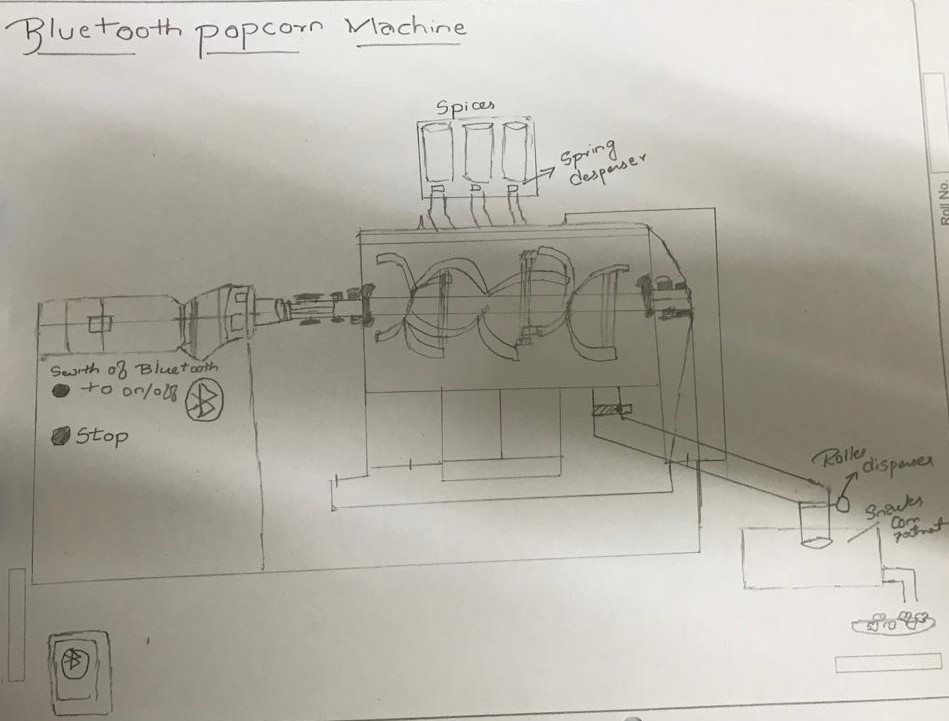 Bluetooth popcorn Machine
Spices
Spring
despenser
Swith of Bluetooth
to on/off
Stop
Roller
dispenser
Snacks
Com
Roll No.